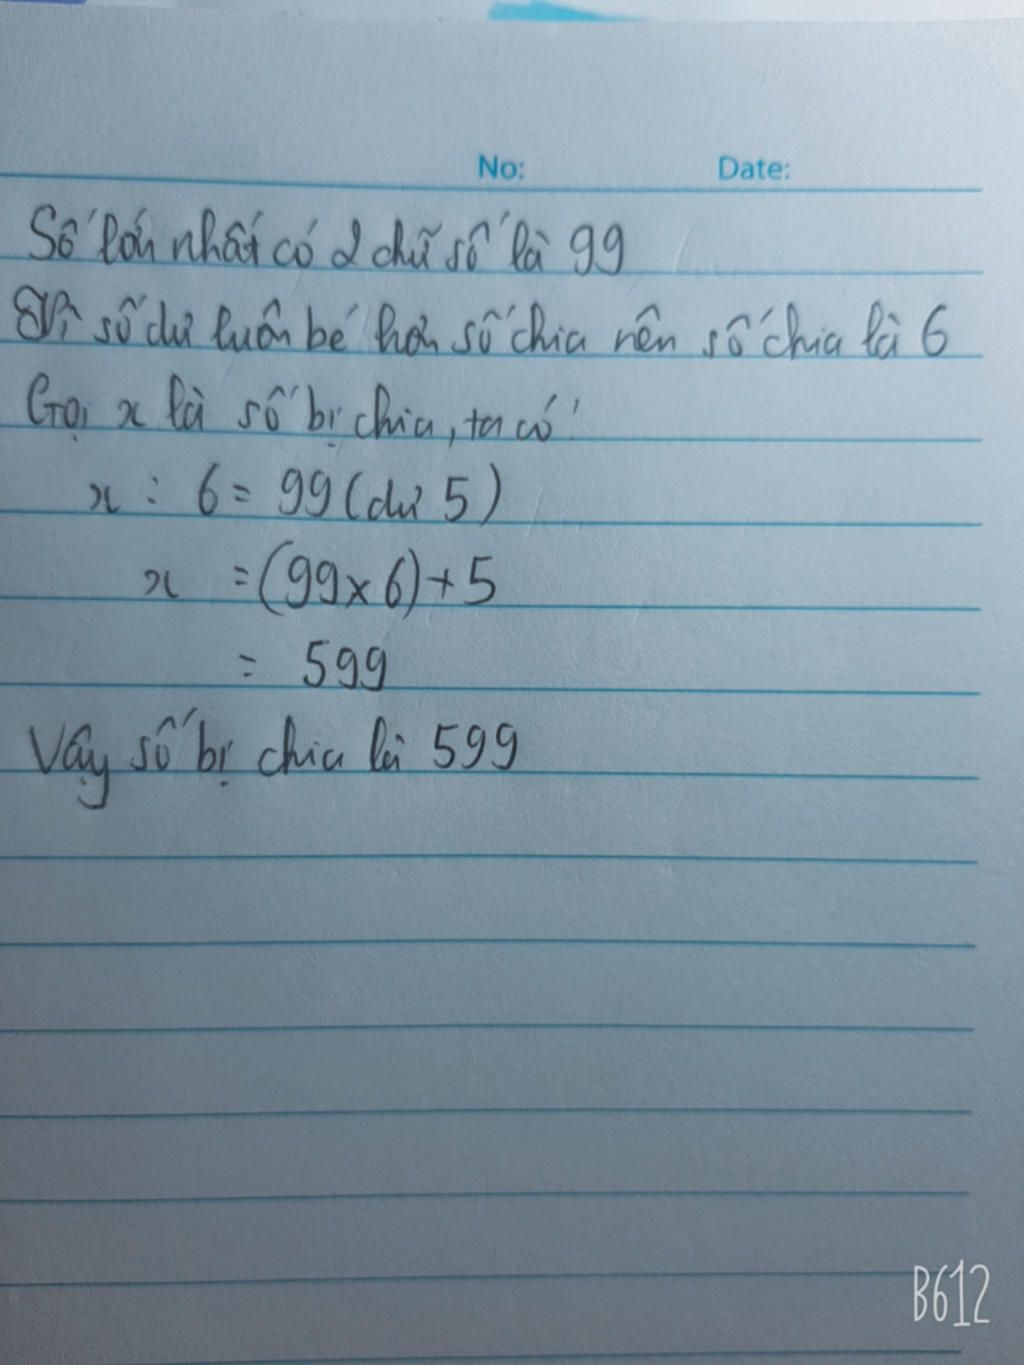 No: Date:
Số lớn nhất có 2 chữ số là 99
Vì số dư luôn bé hơn số chia nên số chia là 6
Gọi x là số bị chia, ta có:
x : 6 = 99 (dư 5)
x = (99 x 6) + 5
= 599
Vậy số bị chia là 599
B612